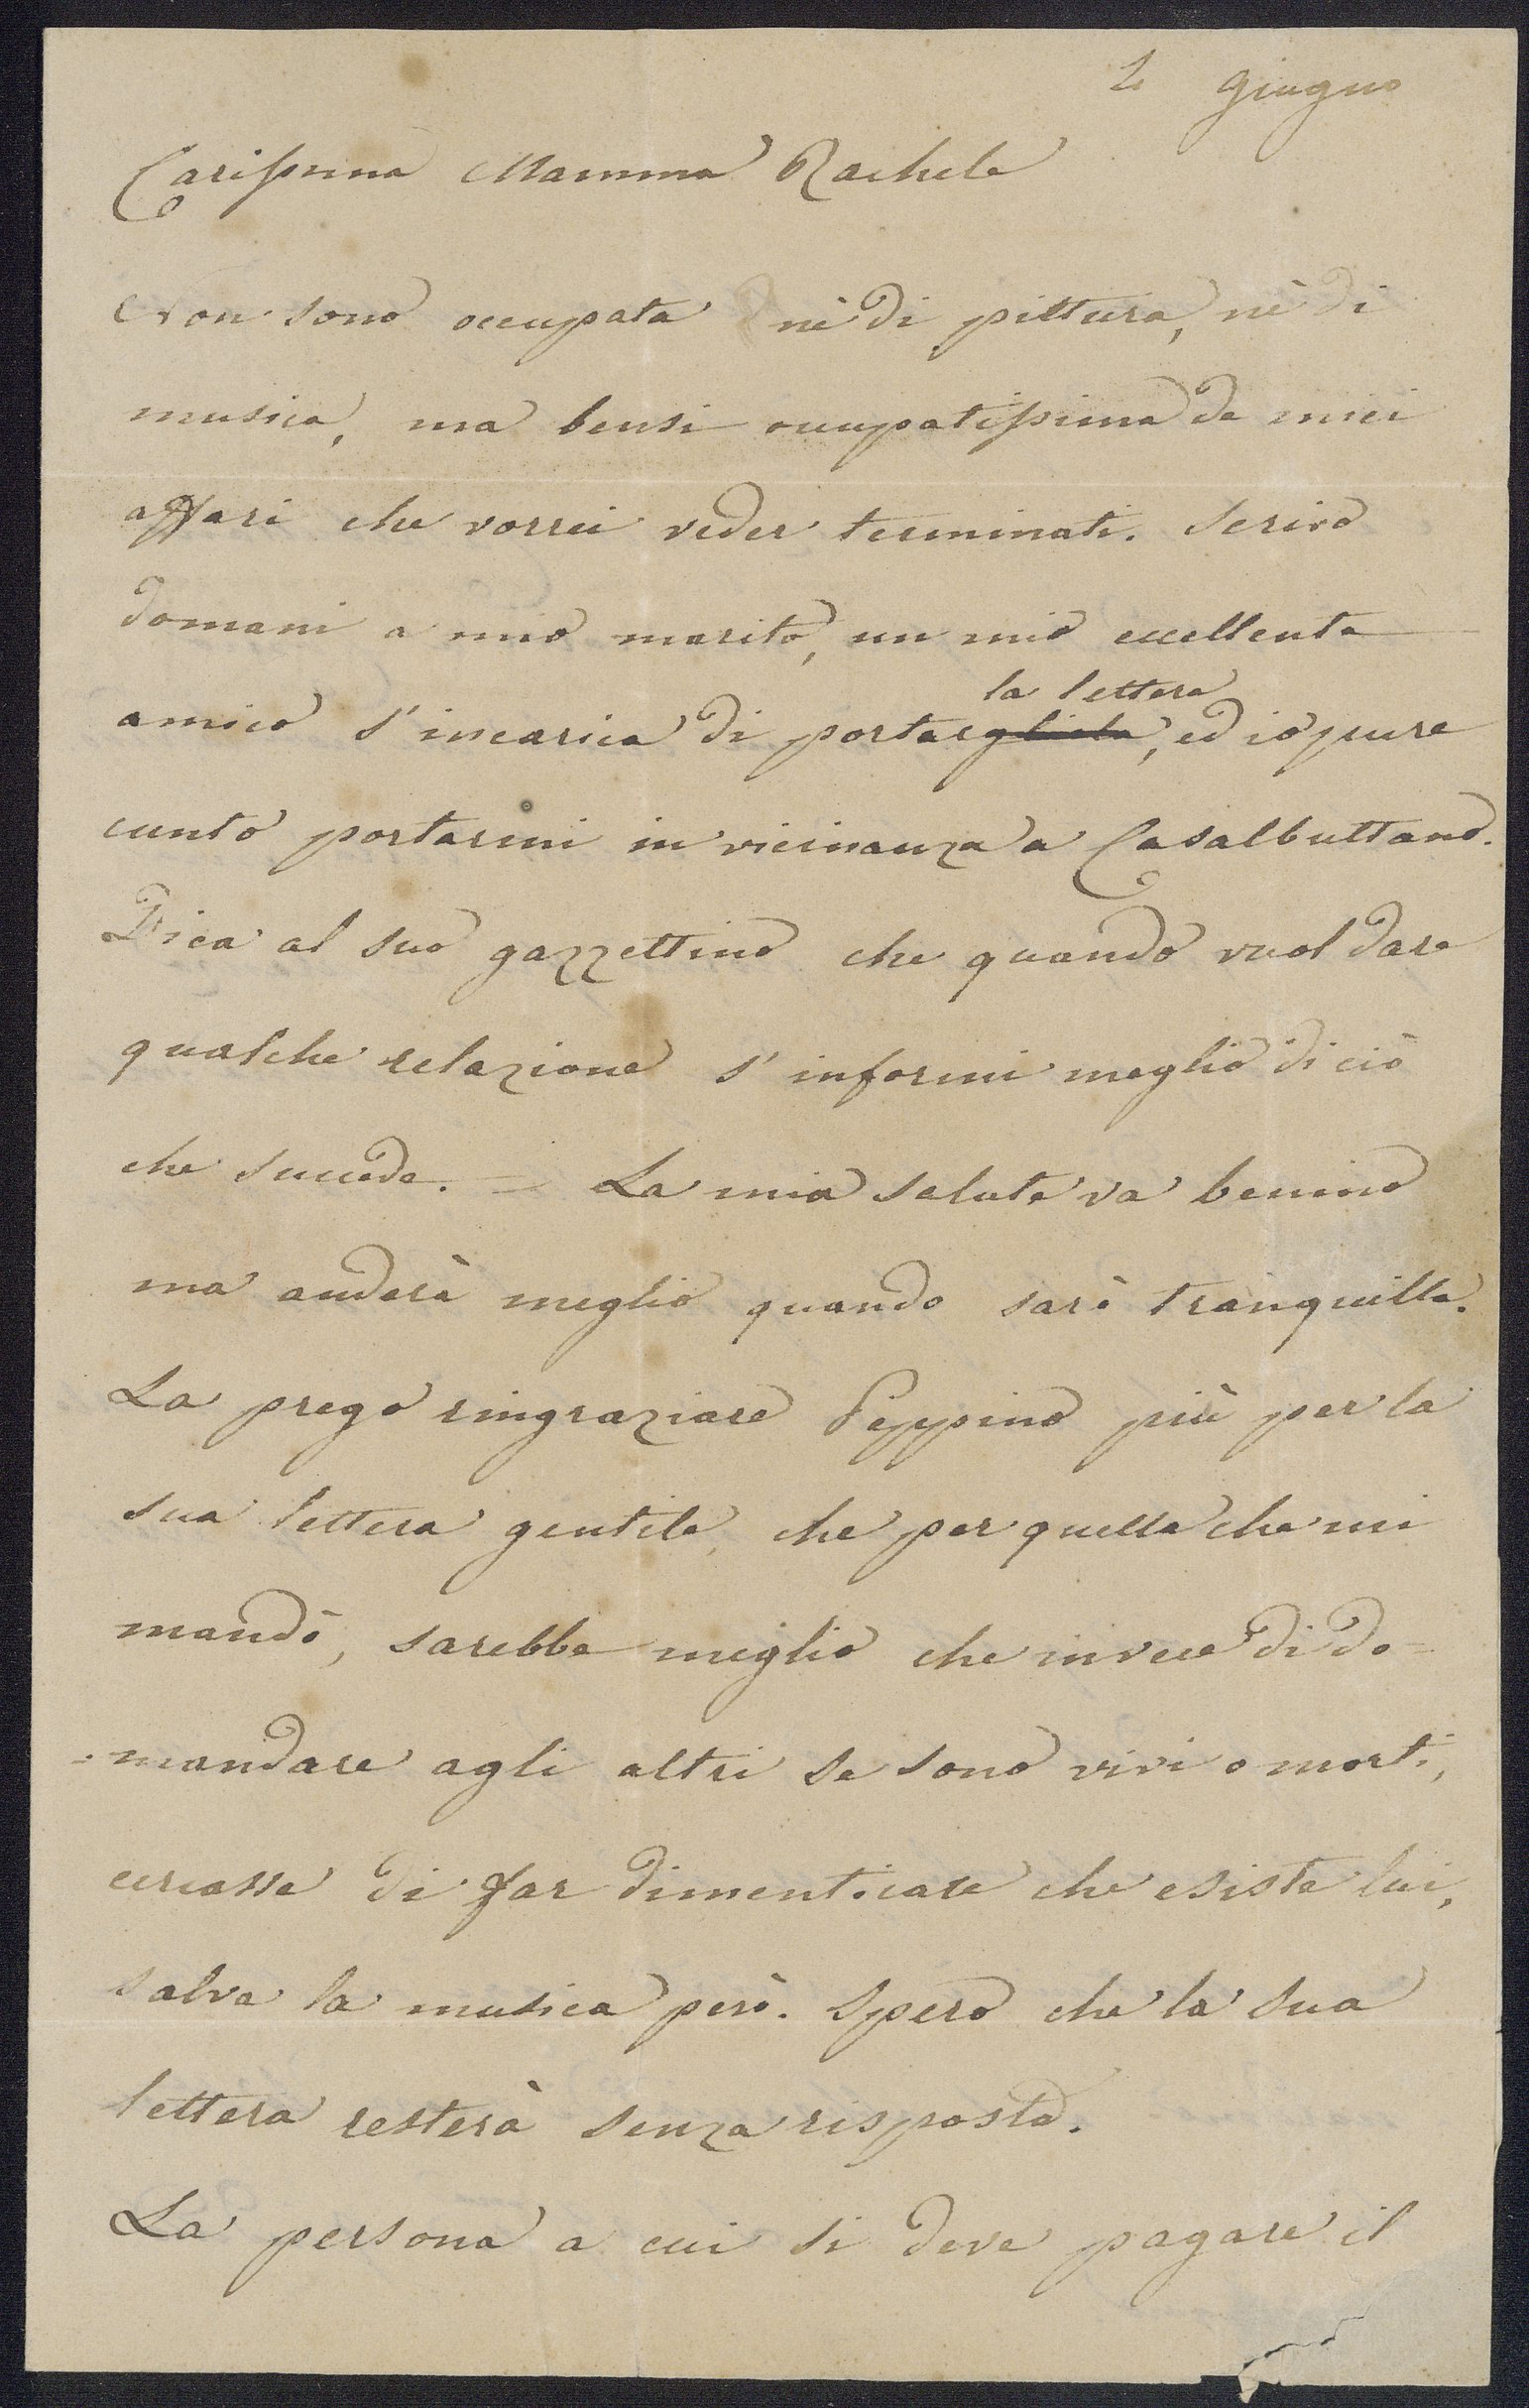 2 giugno
Carissima Mamma Rachele
Non sono occupata nè di pittura, nè di
musica, ma bensi occupatissima de miei
affari che vorrei veder terminati. Scrivo
domani a mio marito, un mio eccellente
la lettera
amico s'incarica di portargliela, ed io pure
conto portarmi in vicinanza a Casalbuttano.
Dica al suo gazzettino che quando vuol dare
qualche relazione s'informi meglio di ciò
che succede. = La mia salute va benino
ma anderà meglio quando sarò tranquilla.
La prego ringraziare Peppino più per la
sua lettera gentile, che per quella che mi
mandò, sarebbe meglio che invece di do=
=mandare agli altri se sono vivi o morti,
cercasse di far dimenticare che esiste lui,
salva la musica però. Spero che la sua
lettera resterà senza risposta.
La persona a cui si deve pagare il